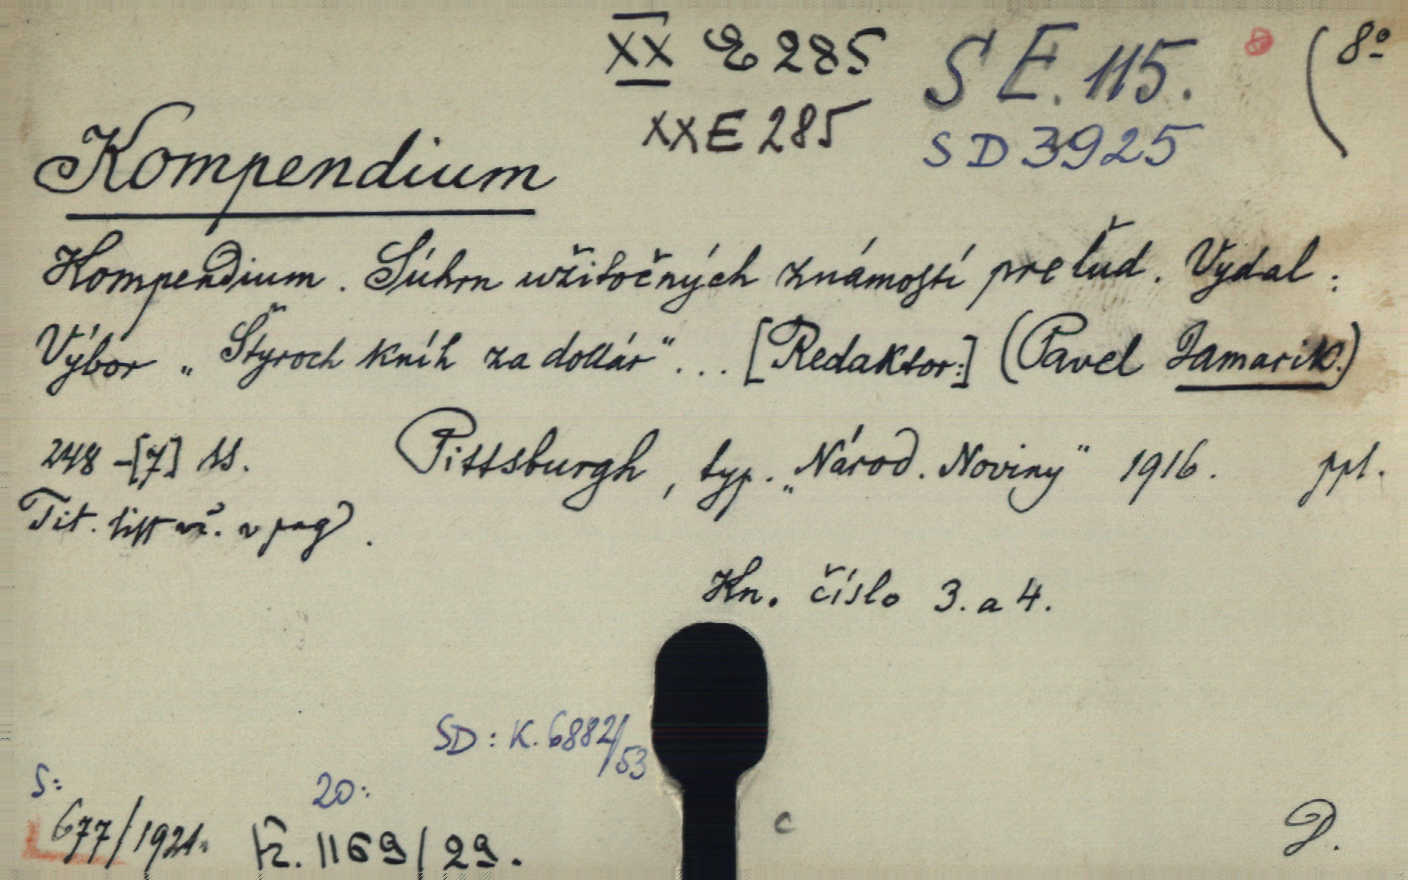 XX E 285
S E. 115.
8
8º
XX E 285
SD 3925
Kompendium
Kompendium. Súhrn užitočných známostí pre ľud. Vydal:
Výbor „Štyroch kníh za dollár"... [Redaktor:] (Pavel Jamarik.)
248-[7] ss. Pittsburgh, typ. „Národ. Noviny" 1916. ppl.
Tit. list vč. v pag.
Kn. číslo 3. a 4.
SD: K. 6882/53
S: 20:
677/1921. K. 1169/29.
c
D.